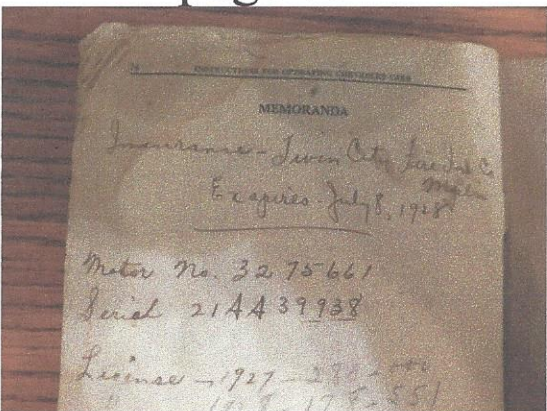 INSTRUCTIONS FOR OPERATING CHEVROLET CARS
MEMORANDA
Insurance - Twin City Fire Ins Co
Expires July 8, 1928
Motor No. 3275661
Serial 21A439938
License - 1927 -